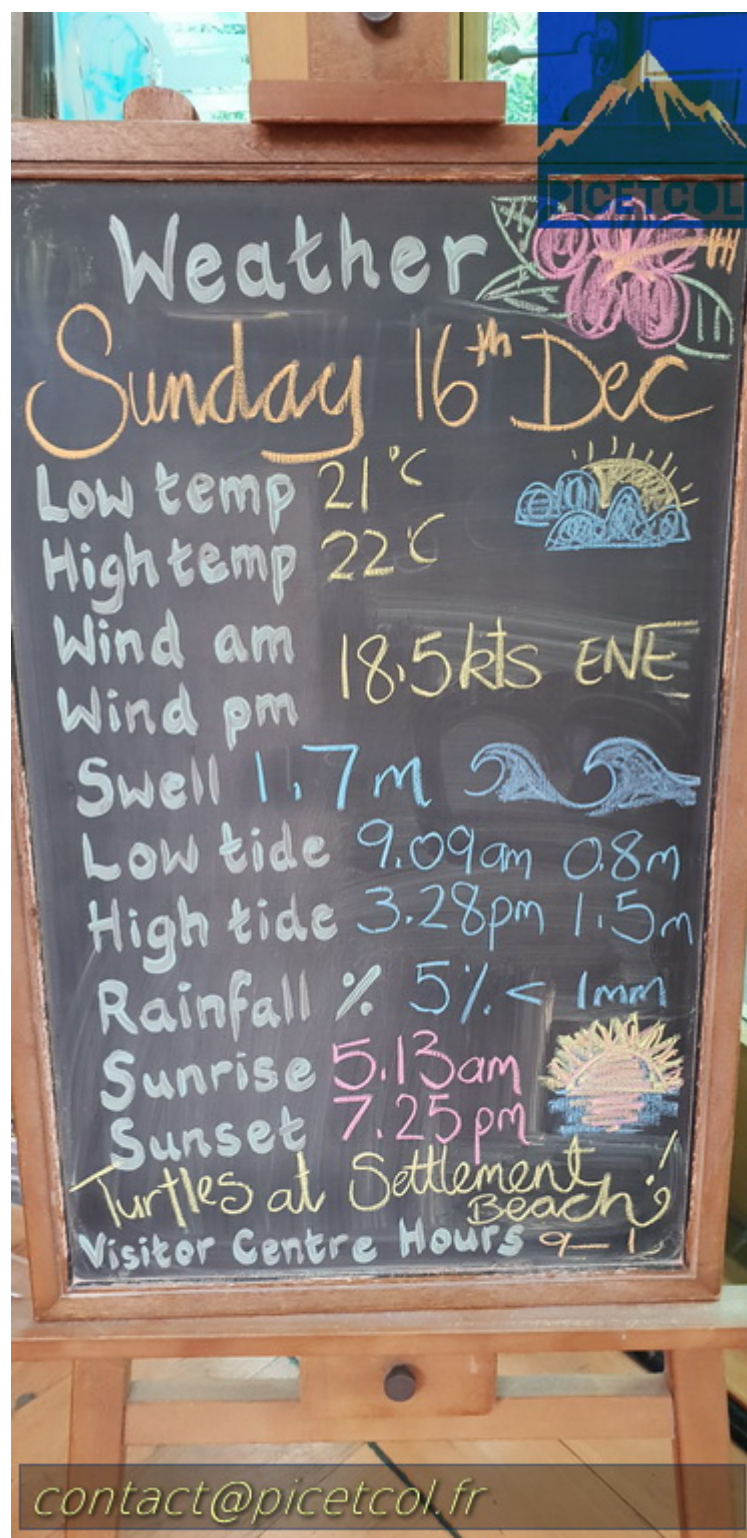 PICETCOL
Weather
Sunday 16th Dec
Low temp 21°C
High temp 22°C
Wind am
18.5kts ENE
Wind pm
Swell 1.7m
Low tide 9.09am 0.8m
High tide 3.28pm 1.5m
Rainfall % 5% < 1mm
Sunrise 5.13am
Sunset 7.25pm
Turtles at Settlement
Beach!
Visitor Centre Hours 9-1
contact@picetcol.fr